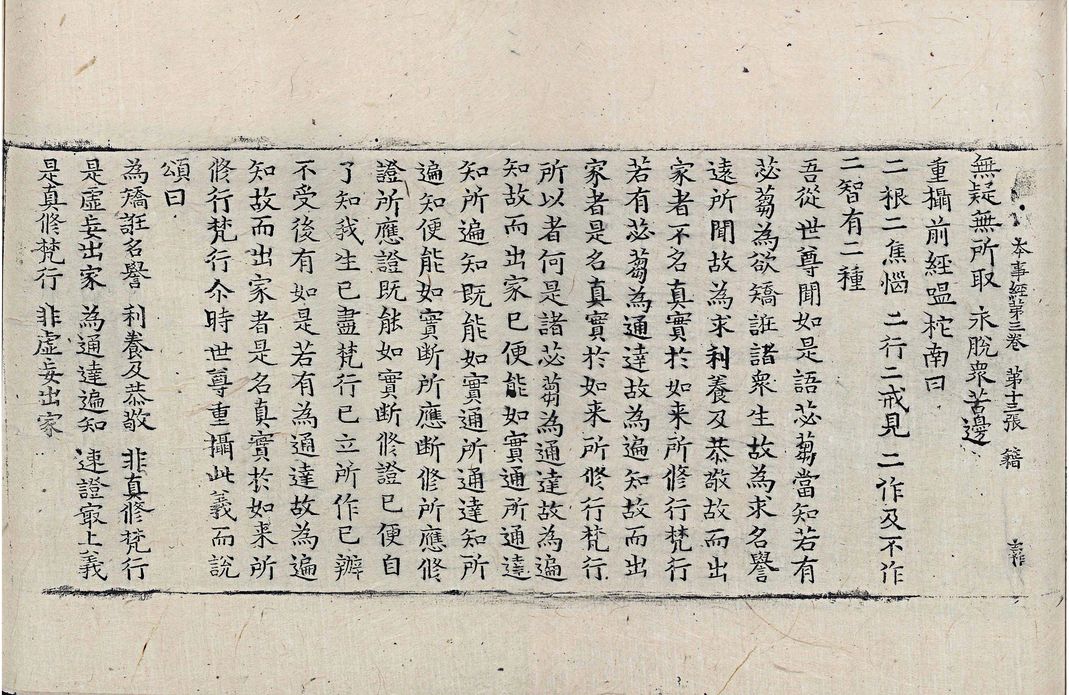 本事經第三卷 第十三張 籍
無疑無所取 永脫衆苦邊
重攝前經嗢柁南曰
二根二焦惱 二行二戒見 二作及不作
二智有二種
吾從世尊聞如是語苾芻當知若有
苾芻為欲矯誑諸衆生故為求名譽
遠所聞故為求利養及恭敬故而出
家者不名真實於如来所修行梵行
若有苾芻為通達故為遍知故而出
家者是名真實於如来所修行梵行
所以者何是諸苾芻為通達故為遍
知故而出家已便能如實通所通達
知所遍知既能如實通所通達知所
遍知便能如實斷所應斷修所應修
證所應證既能如實斷修證已便自
了知我生已盡梵行已立所作已辦
不受後有如是若有為通達故為遍
知故而出家者是名真實於如来所
修行梵行尒時世尊重攝此義而說
頌曰
為矯誑名譽 利養及恭敬 非真修梵行
是虛妄出家 為通達遍知 速證寂上義
是真修梵行 非虛妄出家